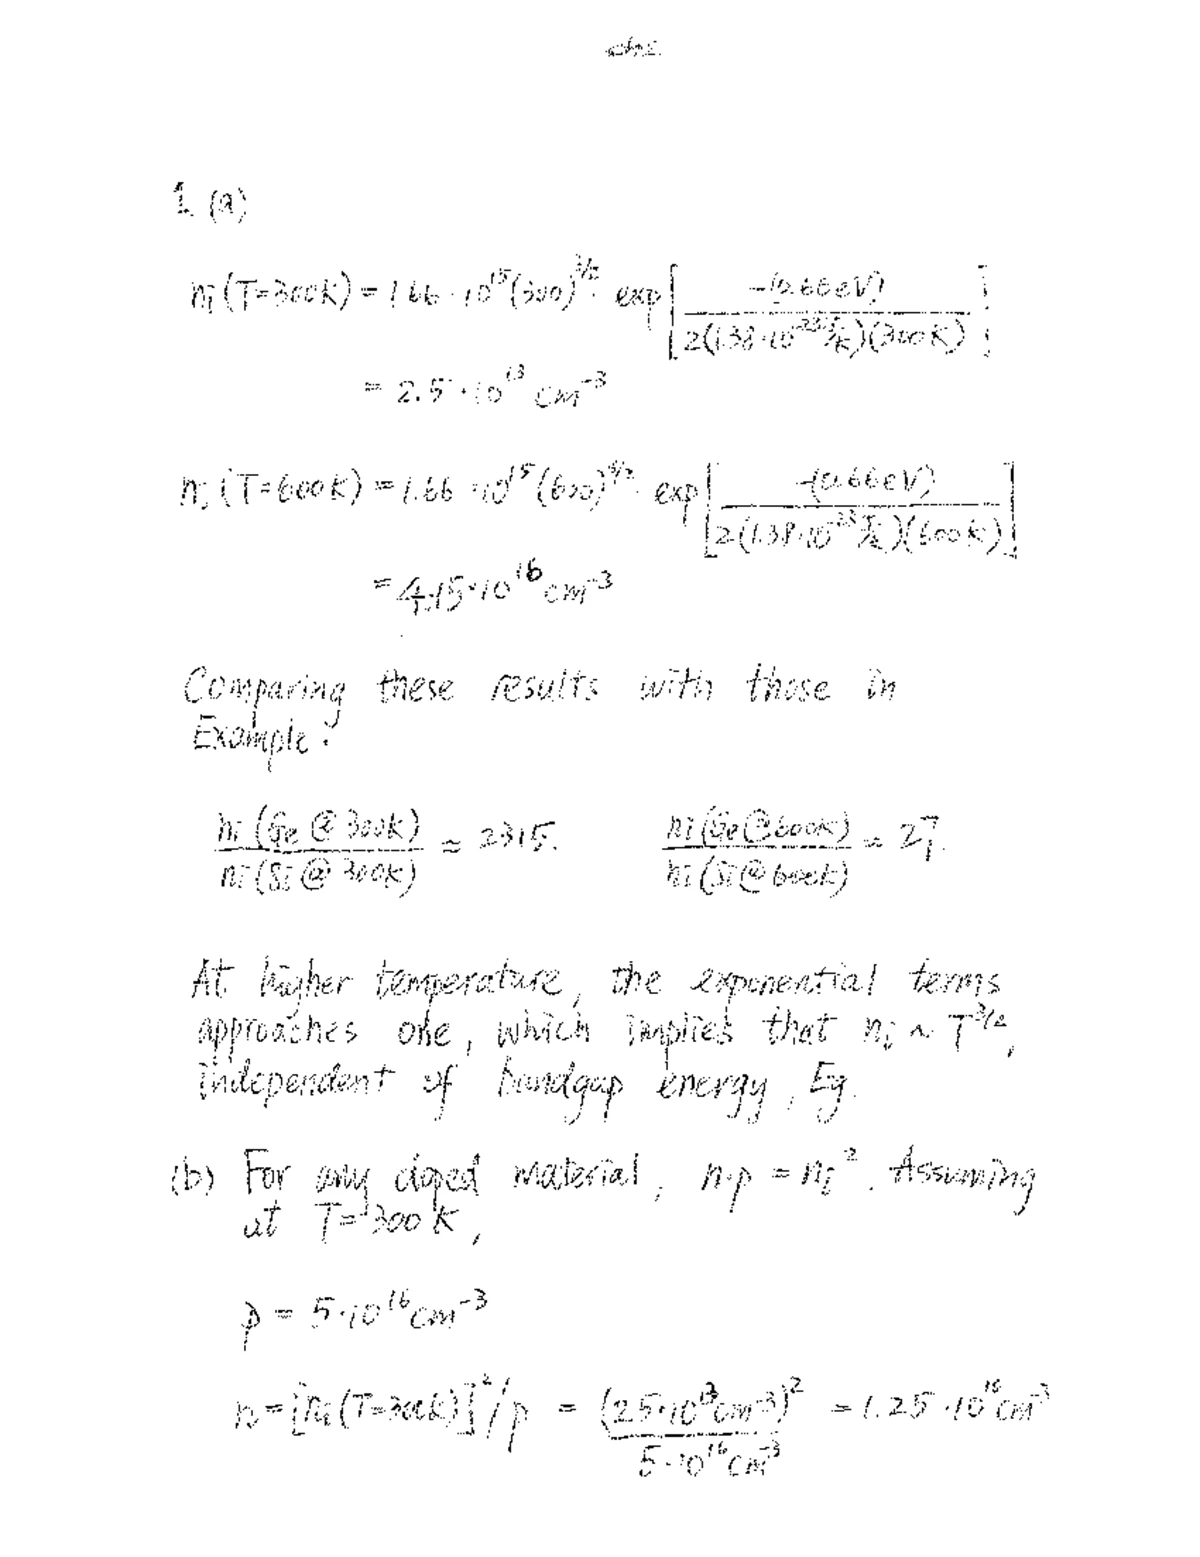 1. (a)
ni (T=300K) = 1.66 · 10^15 (300)^3/2 · exp [ -(0.66eV) / 2(1.38·10^-23 J/K)(300K) ]
= 2.5 · 10^13 cm^-3
ni (T=600K) = 1.66 · 10^15 (600)^3/2 · exp [ -(0.66eV) / 2(1.38·10^-23 J/K)(600K) ]
= 4.15 · 10^16 cm^-3
Comparing these results with those in
Example:
ni (Ge @ 300K) / ni (Si @ 300K) ≈ 2315. ni (Ge @ 600K) / ni (Si @ 600K) ≈ 27.
At higher temperature, the exponential terms
approaches one, which implies that ni ~ T^3/2,
independent of bandgap energy, Eg.
(b) For any doped material, n·p = ni^2. Assuming
at T = 300 K,
p = 5·10^16 cm^-3
n = [ni (T=300K)]^2 / p = (2.5·10^13 cm^-3)^2 / 5·10^16 cm^-3 = 1.25 · 10^10 cm^-3